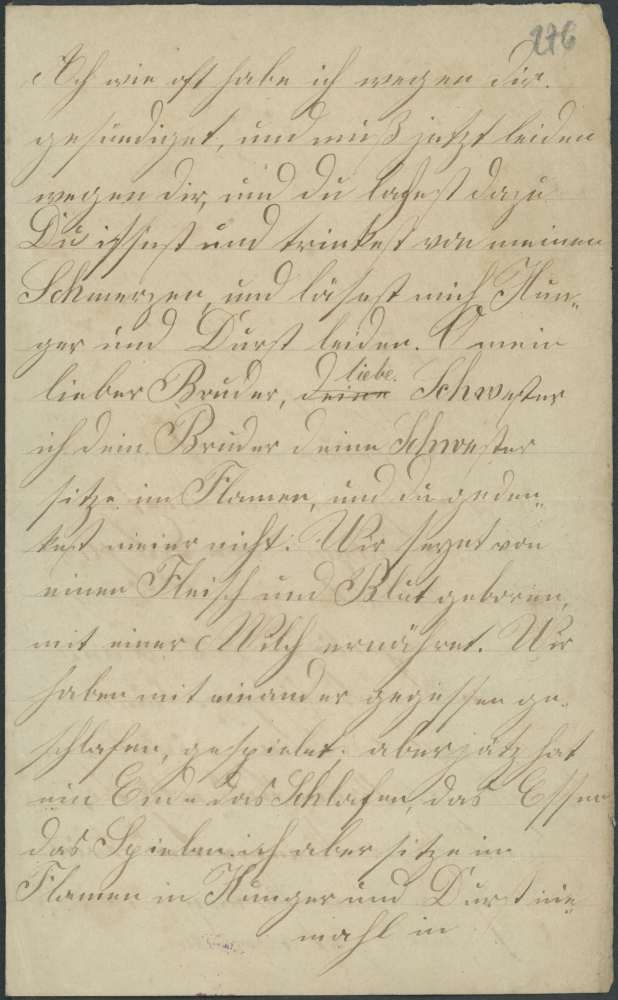 276
Ach wie oft habe ich wegen dir
gesündiget, und muß jetzt leiden
wegen dir, und du lachest dazu
Du issest und trinkest von meinen
Schmerzen, und läsest mich Hun„
ger und Durst leiden. O mein
lieber Bruder, deine liebe. Schwester
ich dein Bruder deine Schwester
sitze im Flamen, und du geden„
kest meiner nicht. Wir seynt von
einen Fleisch und Blut geboren,
mit einer Milch ernähret. Wir
haben mit einander gegessen ge„
schlafen, gespielet; aber jätz hat
ein Ende das Schlafen, das Essen
das Spielen. ich aber sitze im
Flamen in Hunger und Durst nie„
mahl in